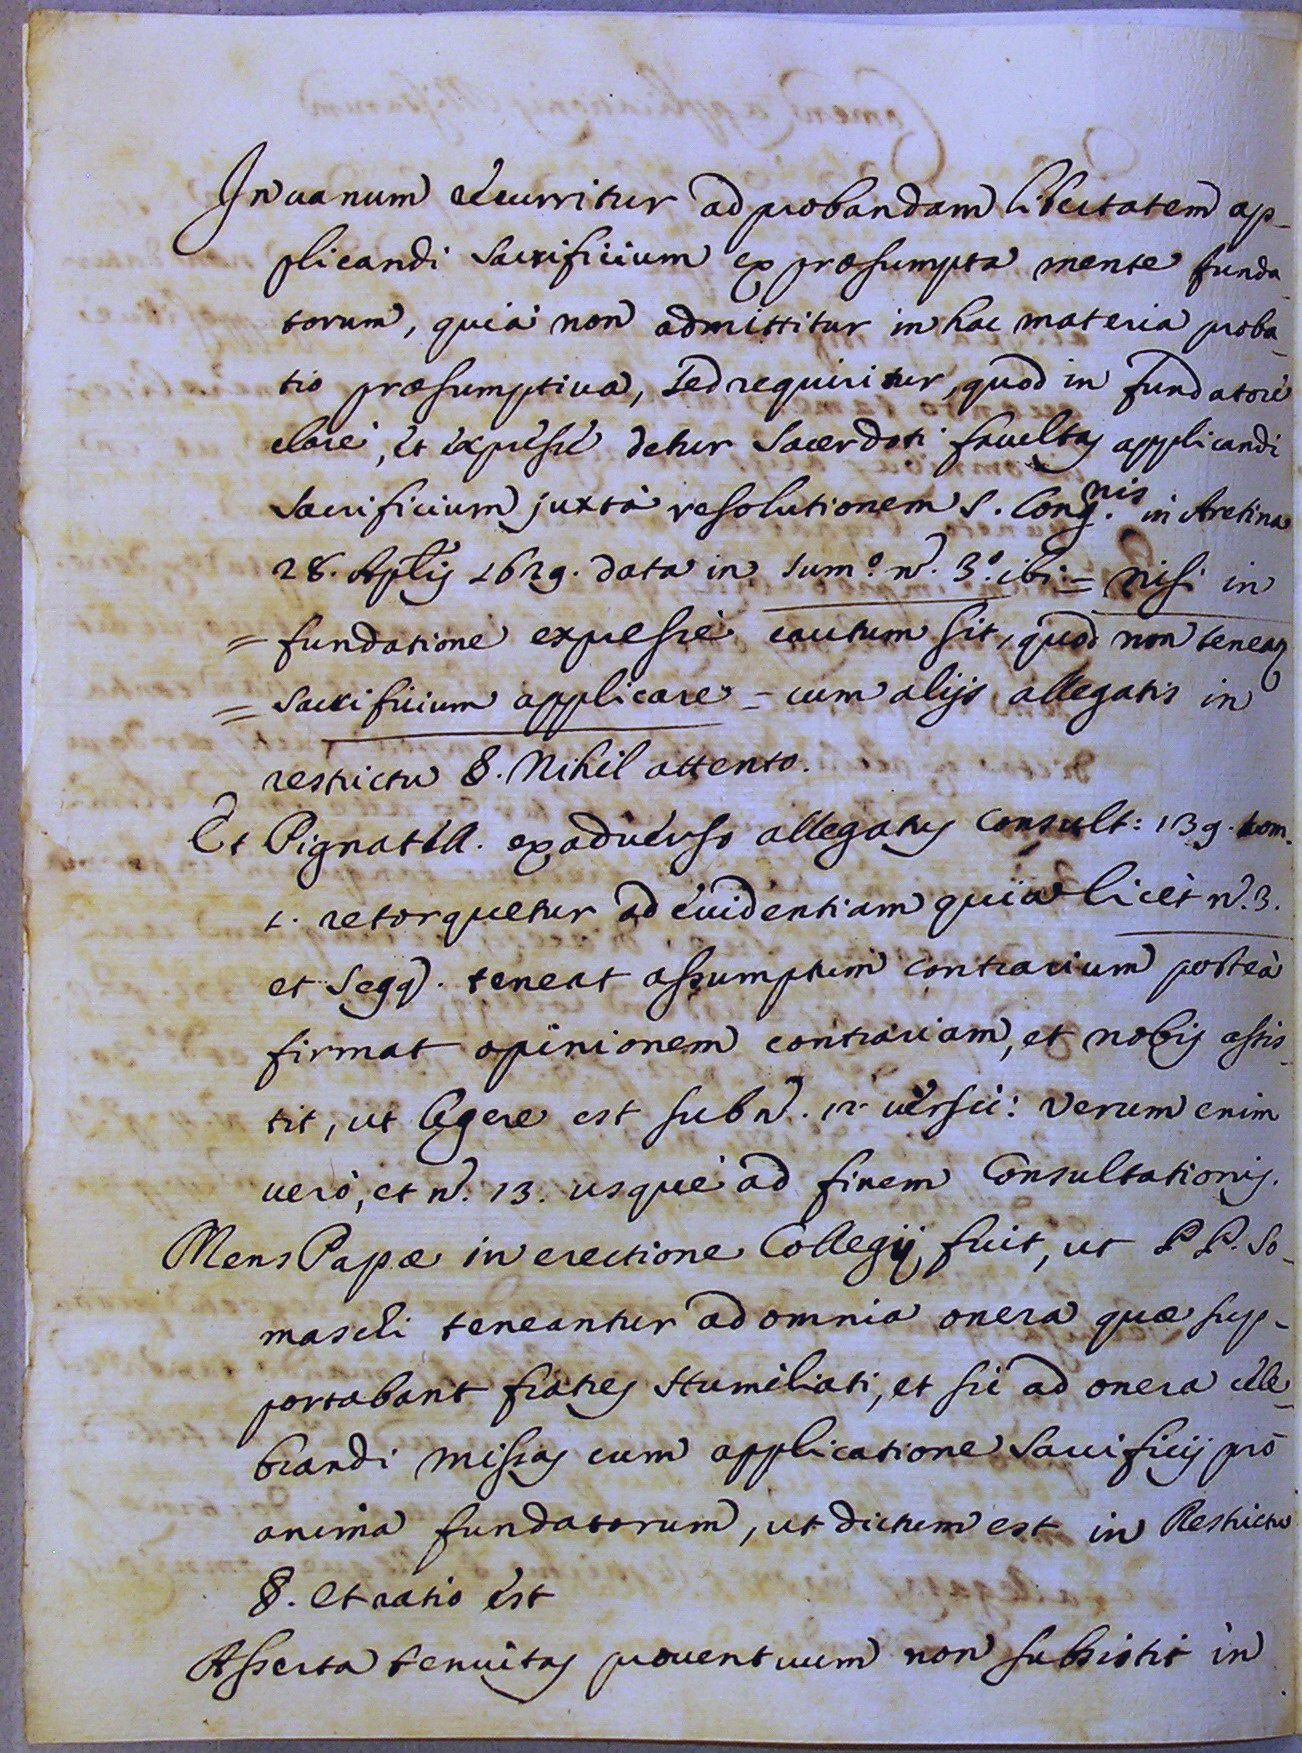 In uanum recurritur ad probandam libertatem ap-
plicandi Sacrificium ex præsumpta mente funda-
torum, quia non admittitur in hac materia proba-
tio præsumptiua, sed requiritur, quod in fundatore
clare, et expresse detur Sacerdoti facultas applicandi
Sacrificium juxta resolutionem S. Cong.nis in Aretina
28. Aplis 1629. data in Sum.o n. 3.o ibi = nisi in
= fundatione expresse cautum sit, quod non teneaq
= Sacrificium applicare = cum alijs allegatis in
restrictu §. Nihil attento.
Et Pignatell. ex aduerso allegatus Consult: 139. tom.
1. retorquetur ad euidentiam quia licet n. 3.
et seqq. teneat assumptum contrarium postea
firmat opinionem contrariam, et nobis assis-
tit, ut legere est sub n. 12. uersic: Verum enim
uero, et n. 13. usque ad finem Consultationis.
Mens Papæ in erectione Collegij fuit, ut P P. So-
maschi teneantur ad omnia onera quæ sup-
portabant fratres Humiliati, et sic ad onera cele-
brandi missas cum applicatione Sacrificij pro
anima fundatorum, ut dictum est in Restrictu
§. Et ratio est
Asserta tenuitas prouentuum non subsistit in